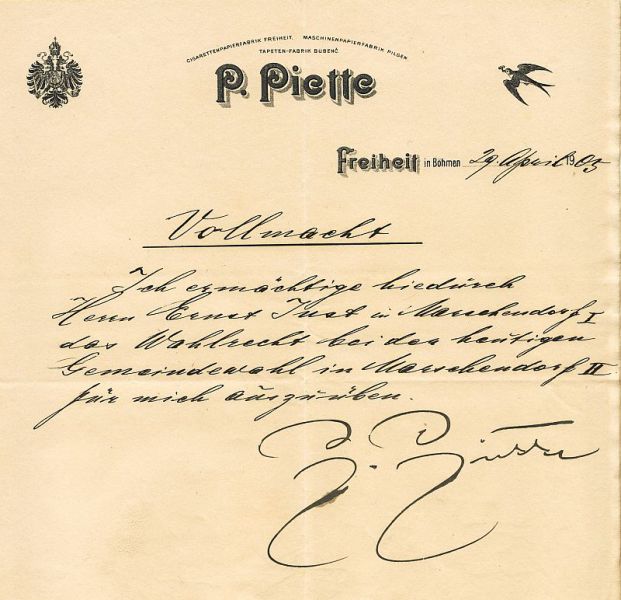 CIGARETTENPAPIERFABRIK FREIHEIT. MASCHINENPAPIERFABRIK PILSEN
TAPETEN-FABRIK BUBENČ.
P. Piette
Freiheit in Böhmen 29. April 1903
Vollmacht
Ich ermächtige hiedurch
Herrn Ernst Just in Marschendorf I
das Wahlrecht bei der heutigen
Gemeindewahl in Marschendorf II
für mich auszuüben.
P. Piette